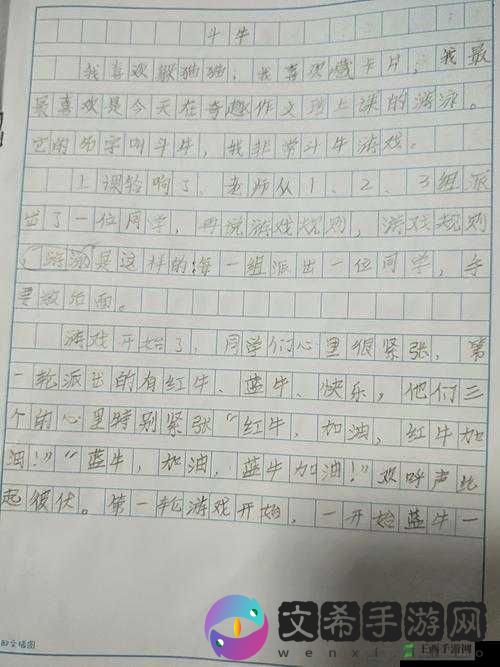 斗牛
我喜欢躲猫猫,我喜欢藏卡片,我最
喜欢是今天在奇趣作文班上课的游泳。
它的名字叫斗牛,我非常斗牛游戏。
上课铃响了,老师从1、2、3组派
出了一位同学,再说游戏规则,游戏规则
是这样的:每一组派出一位同学,手
要放后面。
游戏开始了,同学们心里很紧张,第
一轮派出的有红牛、蓝牛、快乐,他们三
个的心里特别紧张“红牛,加油,红牛加
油!”“蓝牛,加油,蓝牛加油!”欢呼声此
起彼伏。第一轮游戏开始,一开始蓝牛一
文希手游网
wenxi